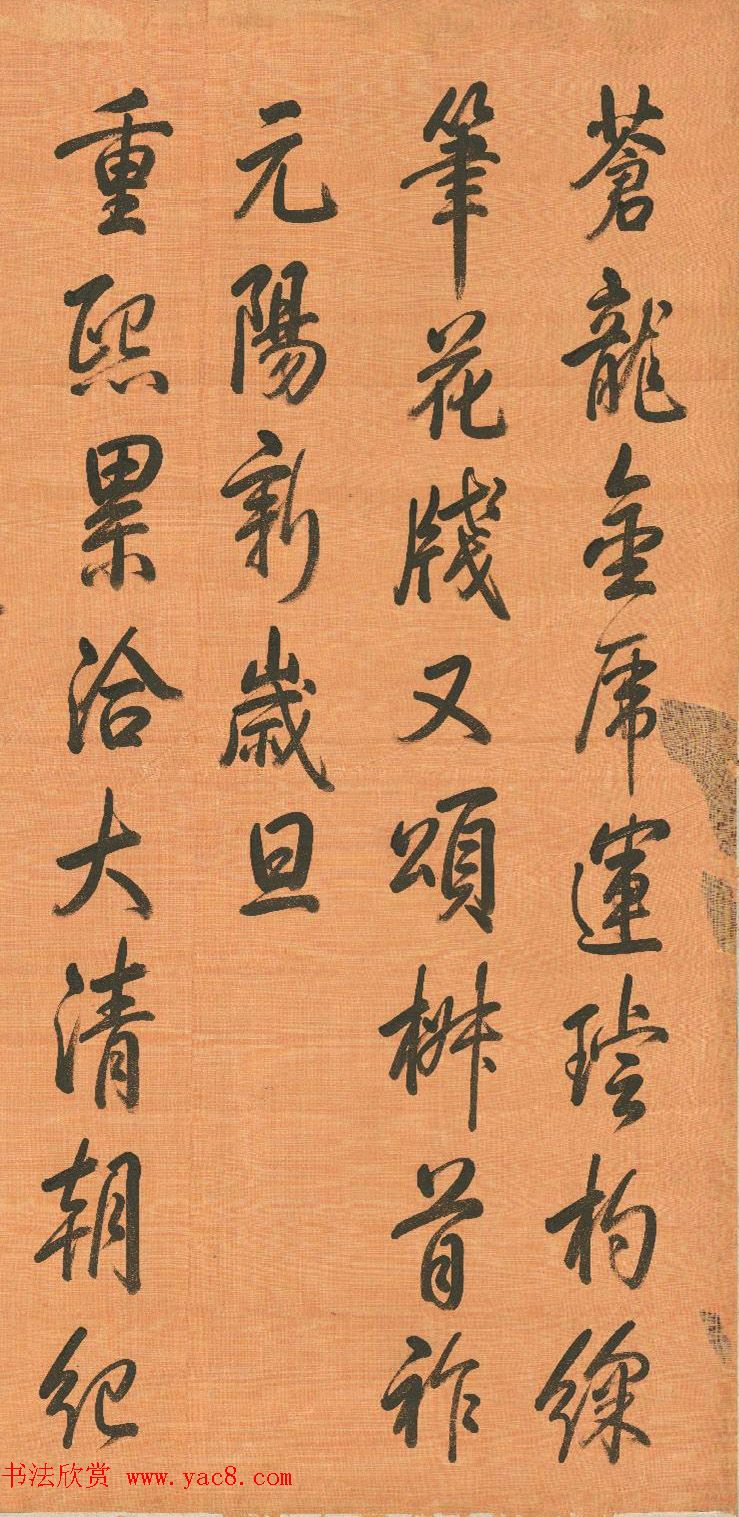 蒼龍金虎運璿杓綵
筆花牋又頌椒首祚
元陽新歲旦
重熙累洽大清朝紀
书法欣赏 www.yac8.com